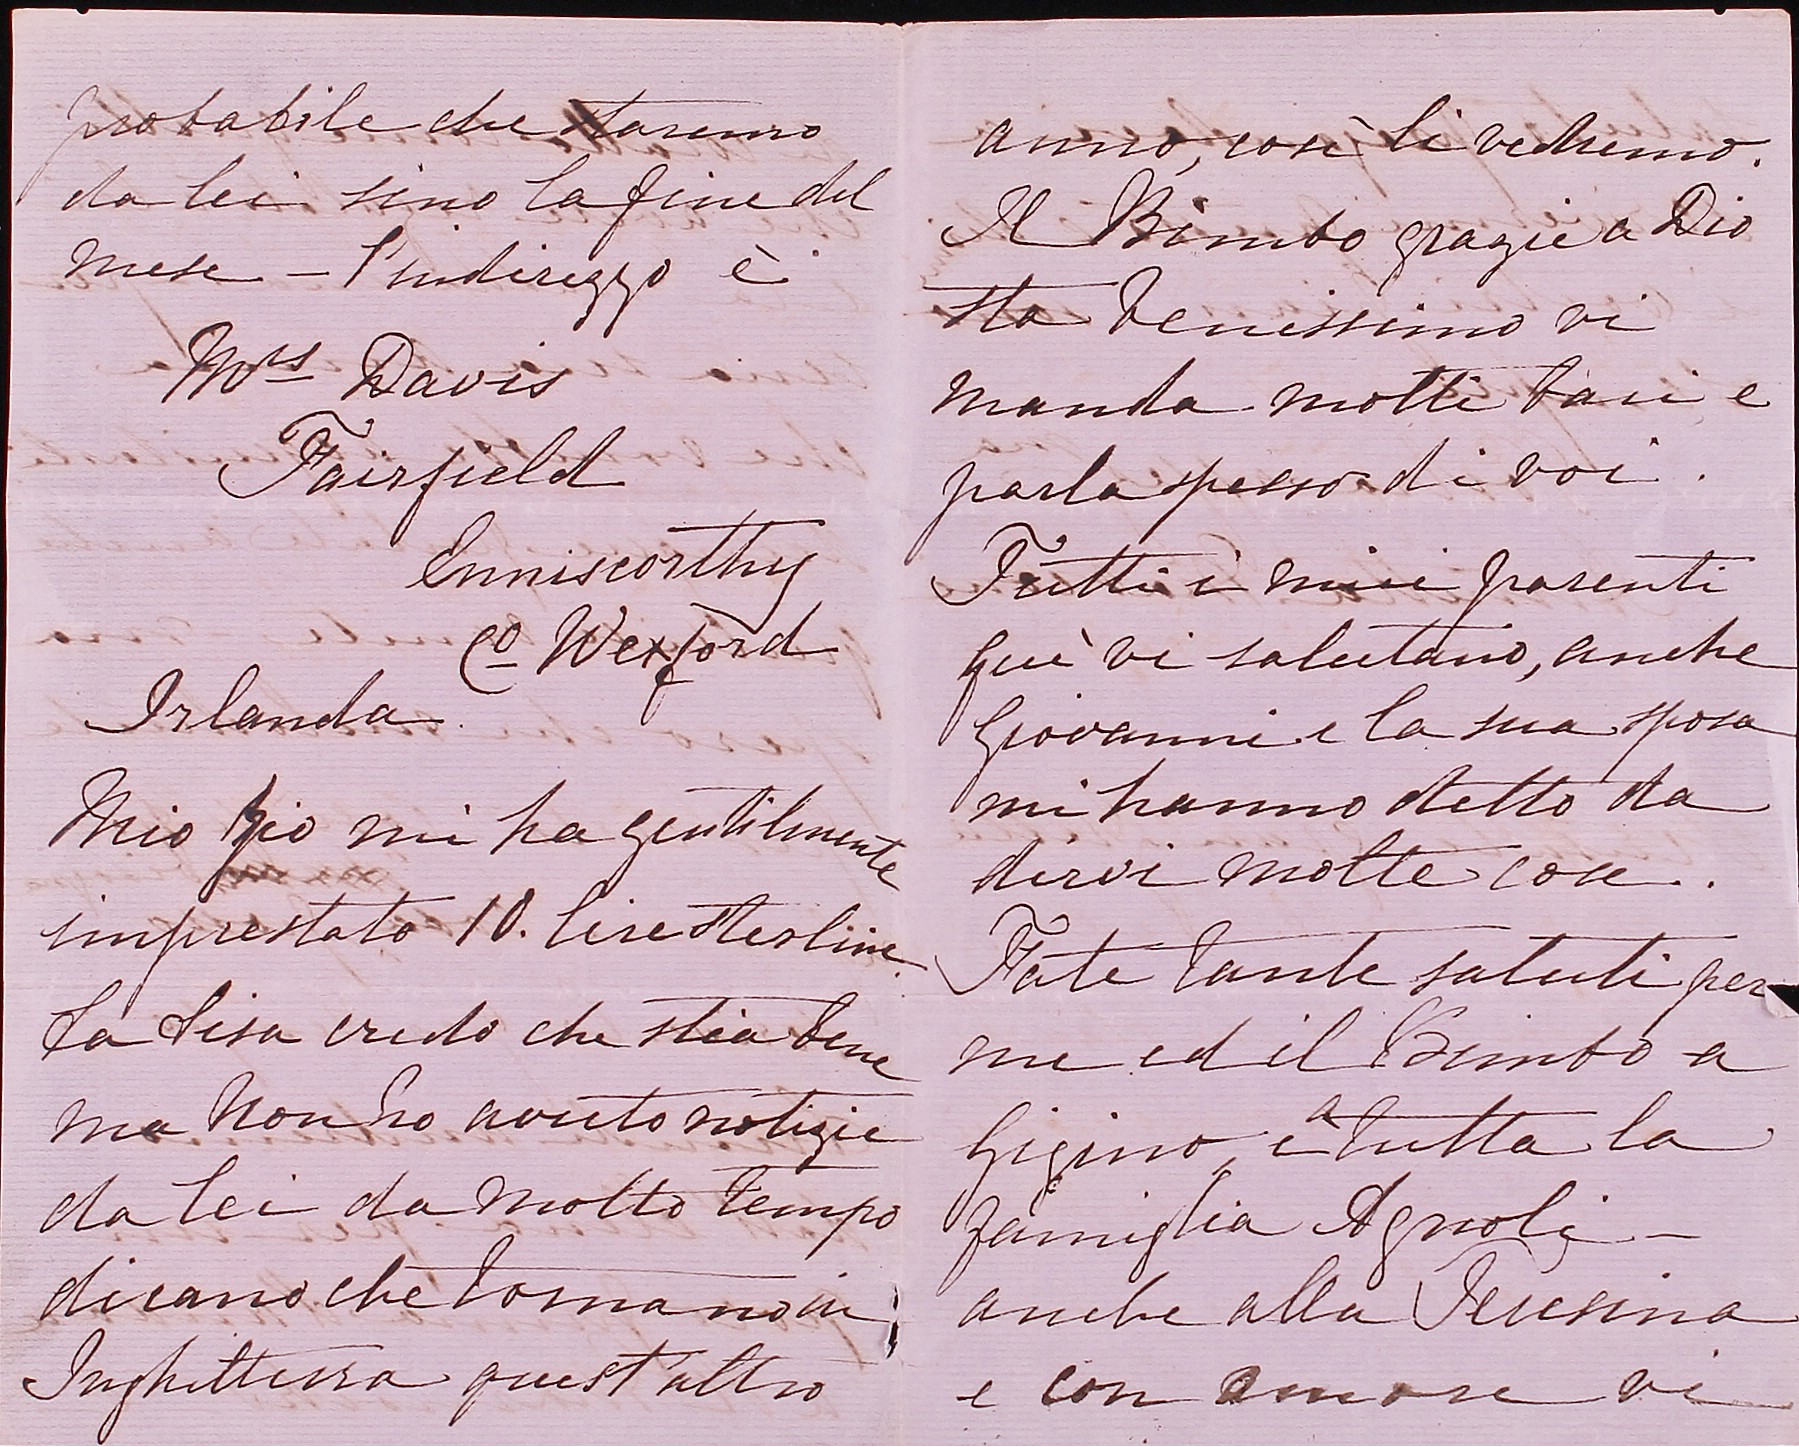 probabile che staremo
da lei sino la fine del
mese – l'indirizzo è
Mrs Davis
Fairfield
Enniscorthy
Co Wexford
Irlanda.
Mio zio mi ha gentilmente
imprestato 10. lire sterline.
La Lisa credo che stia bene
ma non ho avuto notizie
da lei da molto tempo
dicano che tornano in
Inghilterra quest'altro
anno, così li vedremo.
Il Bimbo grazie a Dio
sta benissimo vi
manda molti baci e
parla spesso di voi.
Tutti i miei parenti
quì vi salutano, anche
Giovanni e la sua sposa
mi hanno detto da
dirvi molte cose.
Fate tante saluti per
me ed il Bimbo a
Gigino, e a tutta la
famiglia Agnoli –
anche alla Teresina
e con amore vi